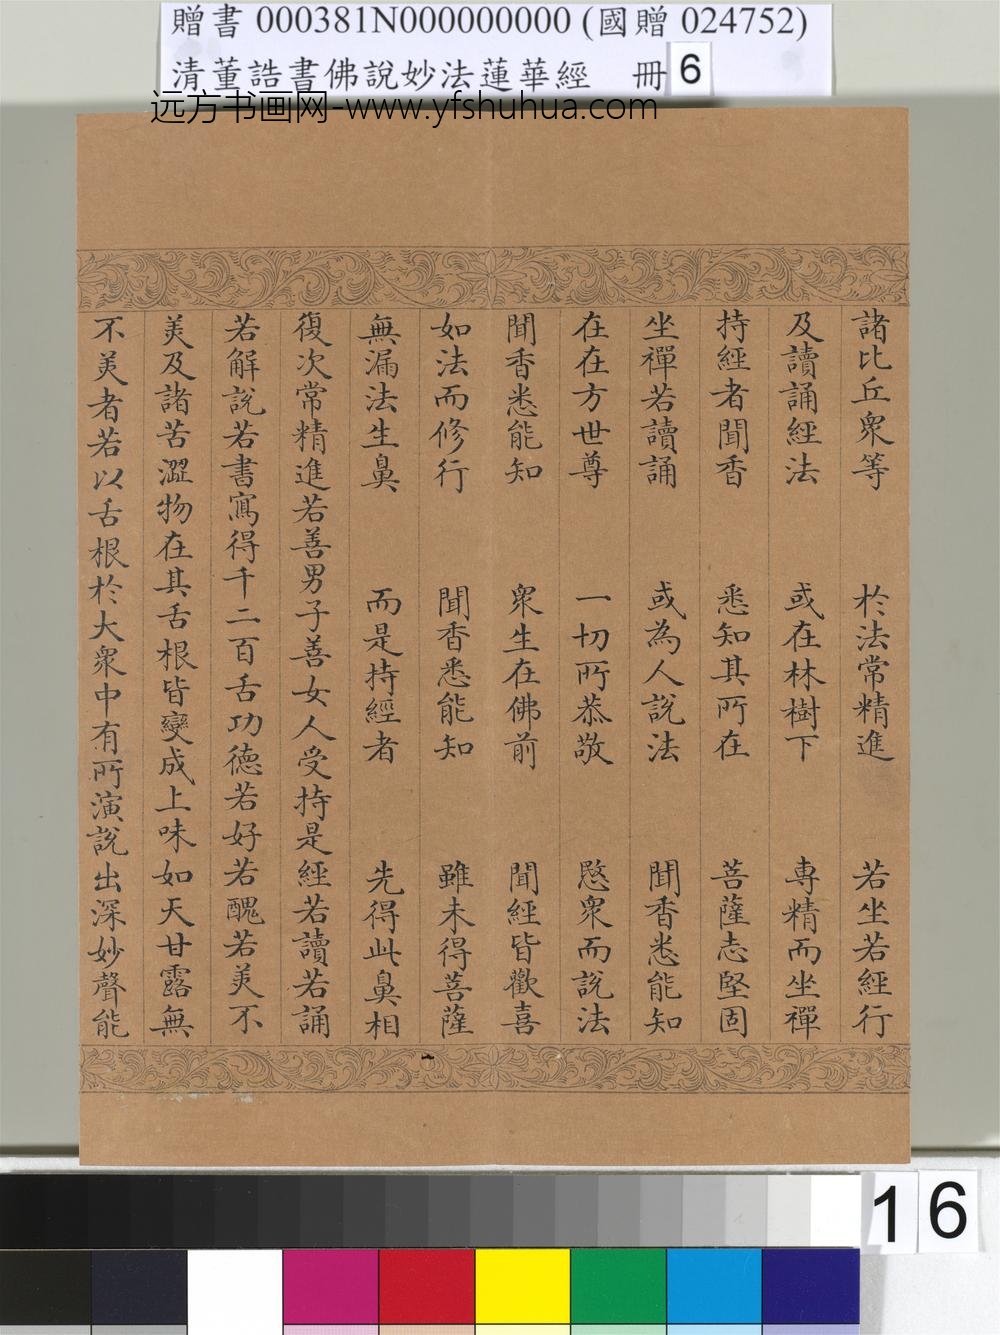 贈書 000381N000000000 (國贈 024752)
清董誥書佛說妙法蓮華經 冊 6
远方书画网-www.yfshuhua.com
諸比丘眾等 於法常精進 若坐若經行
及讀誦經法 或在林樹下 專精而坐禪
持經者聞香 悉知其所在 菩薩志堅固
坐禪若讀誦 或為人說法 聞香悉能知
在在方世尊 一切所恭敬 愍眾而說法
聞香悉能知 眾生在佛前 聞經皆歡喜
如法而修行 聞香悉能知 雖未得菩薩
無漏法生鼻 而是持經者 先得此鼻相
復次常精進若善男子善女人受持是經若讀若誦
若解說若書寫得千二百舌功德若好若醜若美不
美及諸苦澀物在其舌根皆變成上味如天甘露無
不美者若以舌根於大眾中有所演說出深妙聲能
16